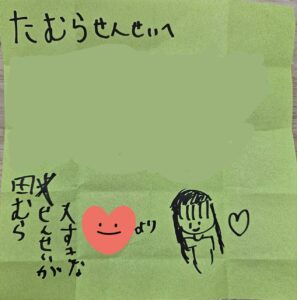 たむらせんせいへ
田むら
せんせいが
大すきな
より